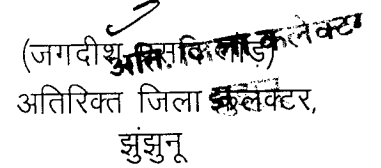 (जगदीश
अति. जिला कलेक्टर
अतिरिक्त जिला कलेक्टर,
झुंझुनू